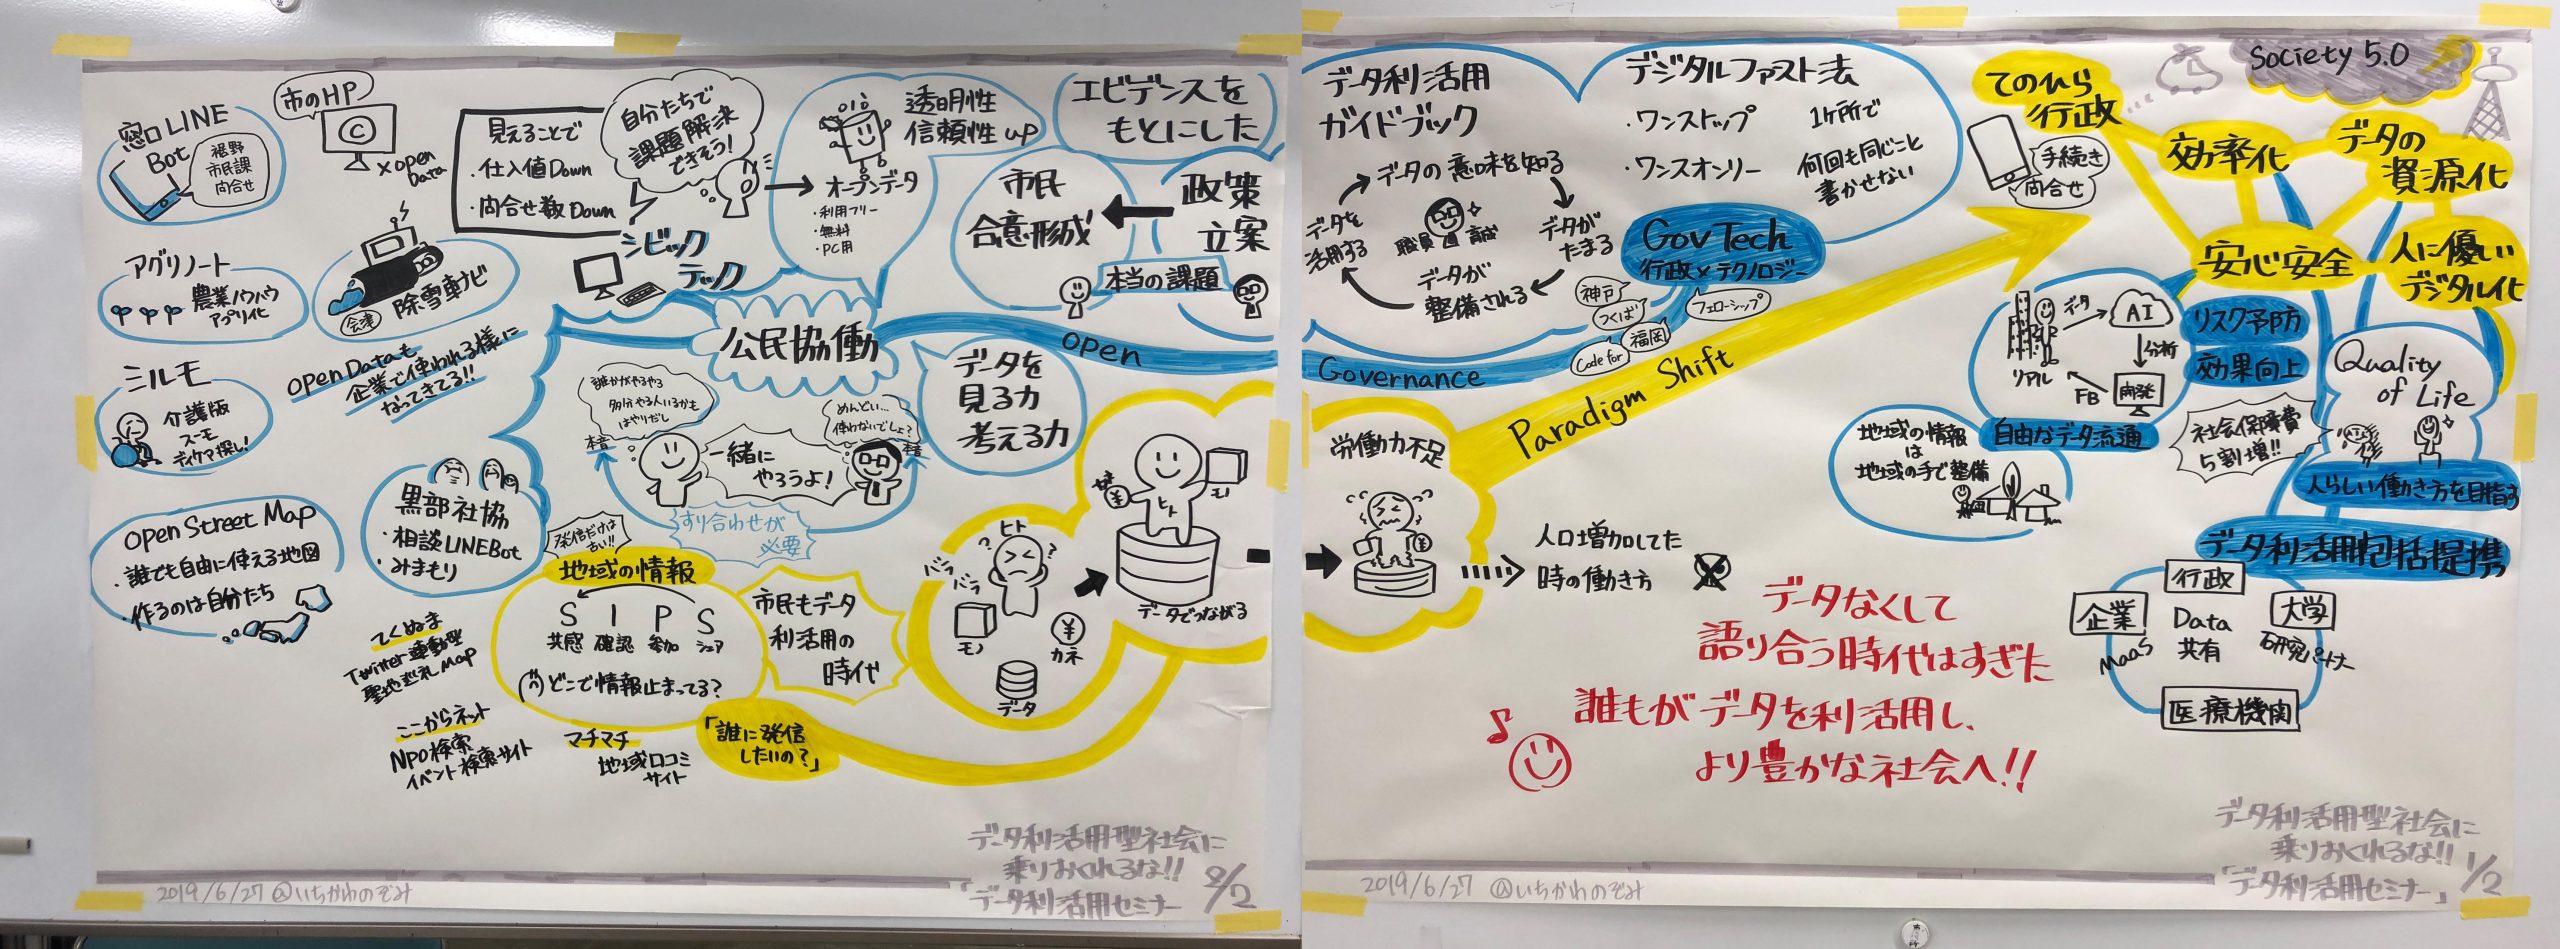 窓口LINE
Bot
裾野
市民課
問合せ
市のHP
C
×open
Data
アグリノート
農業ノウハウ
アプリ化
会津
除雪車ナビ
Open Dataも
企業で使われる様に
なってきてる!!
ミルモ
介護版
スーモ
デイケア探し!
Open Street Map
・誰でも自由に使える地図
・作るのは自分たち
黒部社協
・相談LINEBot
・みまもり
てくぬま
Twitter連動型
聖地巡礼Map
ここからネット
NPO検索
イベント検索サイト
見えることで
・仕入値Down
・問合せ数Down
自分たちで
課題解決
できそう!
シビック
テック
透明性
信頼性up
オープンデータ
・利用フリー
・無料
・PC用
エビデンスを
もとにした
政策
立案
市民
合意形成
本当の課題
公民協働
open
データを
見る力
考える力
誰かがやるやる
多分やる人いるかも
はやりだし
本音
めんどい…
使わないでしょ?
本音
一緒に
やろうよ!
すり合わせが
必要
発信だけは
古い!!
地域の情報
S I P S
共感 確認 参加 シェア
どこで情報止まってる?
市民もデータ
利活用の
時代
マチマチ
地域口コミ
サイト
「誰に発信
したいの?」
バラバラ
ヒト
モノ
カネ
¥
データ
ヒト
モノ
¥
データでつながる
データ利活用型社会に
乗りおくれるな!!
「データ利活用セミナー
2/2
2019/6/27 @いちかわのぞみ
データ利活用
ガイドブック
データの意味を知る
データが
たまる
データが
整備される
データを
活用する
職員 育成
デジタルファスト法
・ワンストップ 1ヶ所で
・ワンスオンリー 何回も同じこと
書かせない
GovTech
行政×テクノロジー
神戸
つくば
福岡
Code for
フェローシップ
Governance
Paradigm Shift
労働力不足
¥
人口増加してた
時の働き方
データなくして
語り合う時代はすぎた
誰もがデータを利活用し、
より豊かな社会へ!!
Society 5.0
てのひら
行政
手続き
問合せ
効率化
データの
資源化
安心安全
人に優しい
デジタル化
リアル
データ
AI
分析
開発
FB
リスク予防
効果向上
自由なデータ流通
地域の情報
は
地域の手で整備
社会保障費
5割増!!
Quality
of Life
人らしい働き方を目指す
データ利活用包括提携
行政
企業
大学
Data
共有
MaaS
研究パートナー
医療機関
データ利活用型社会に
乗りおくれるな!!
「データ利活用セミナー」
1/2
2019/6/27 @いちかわのぞみ